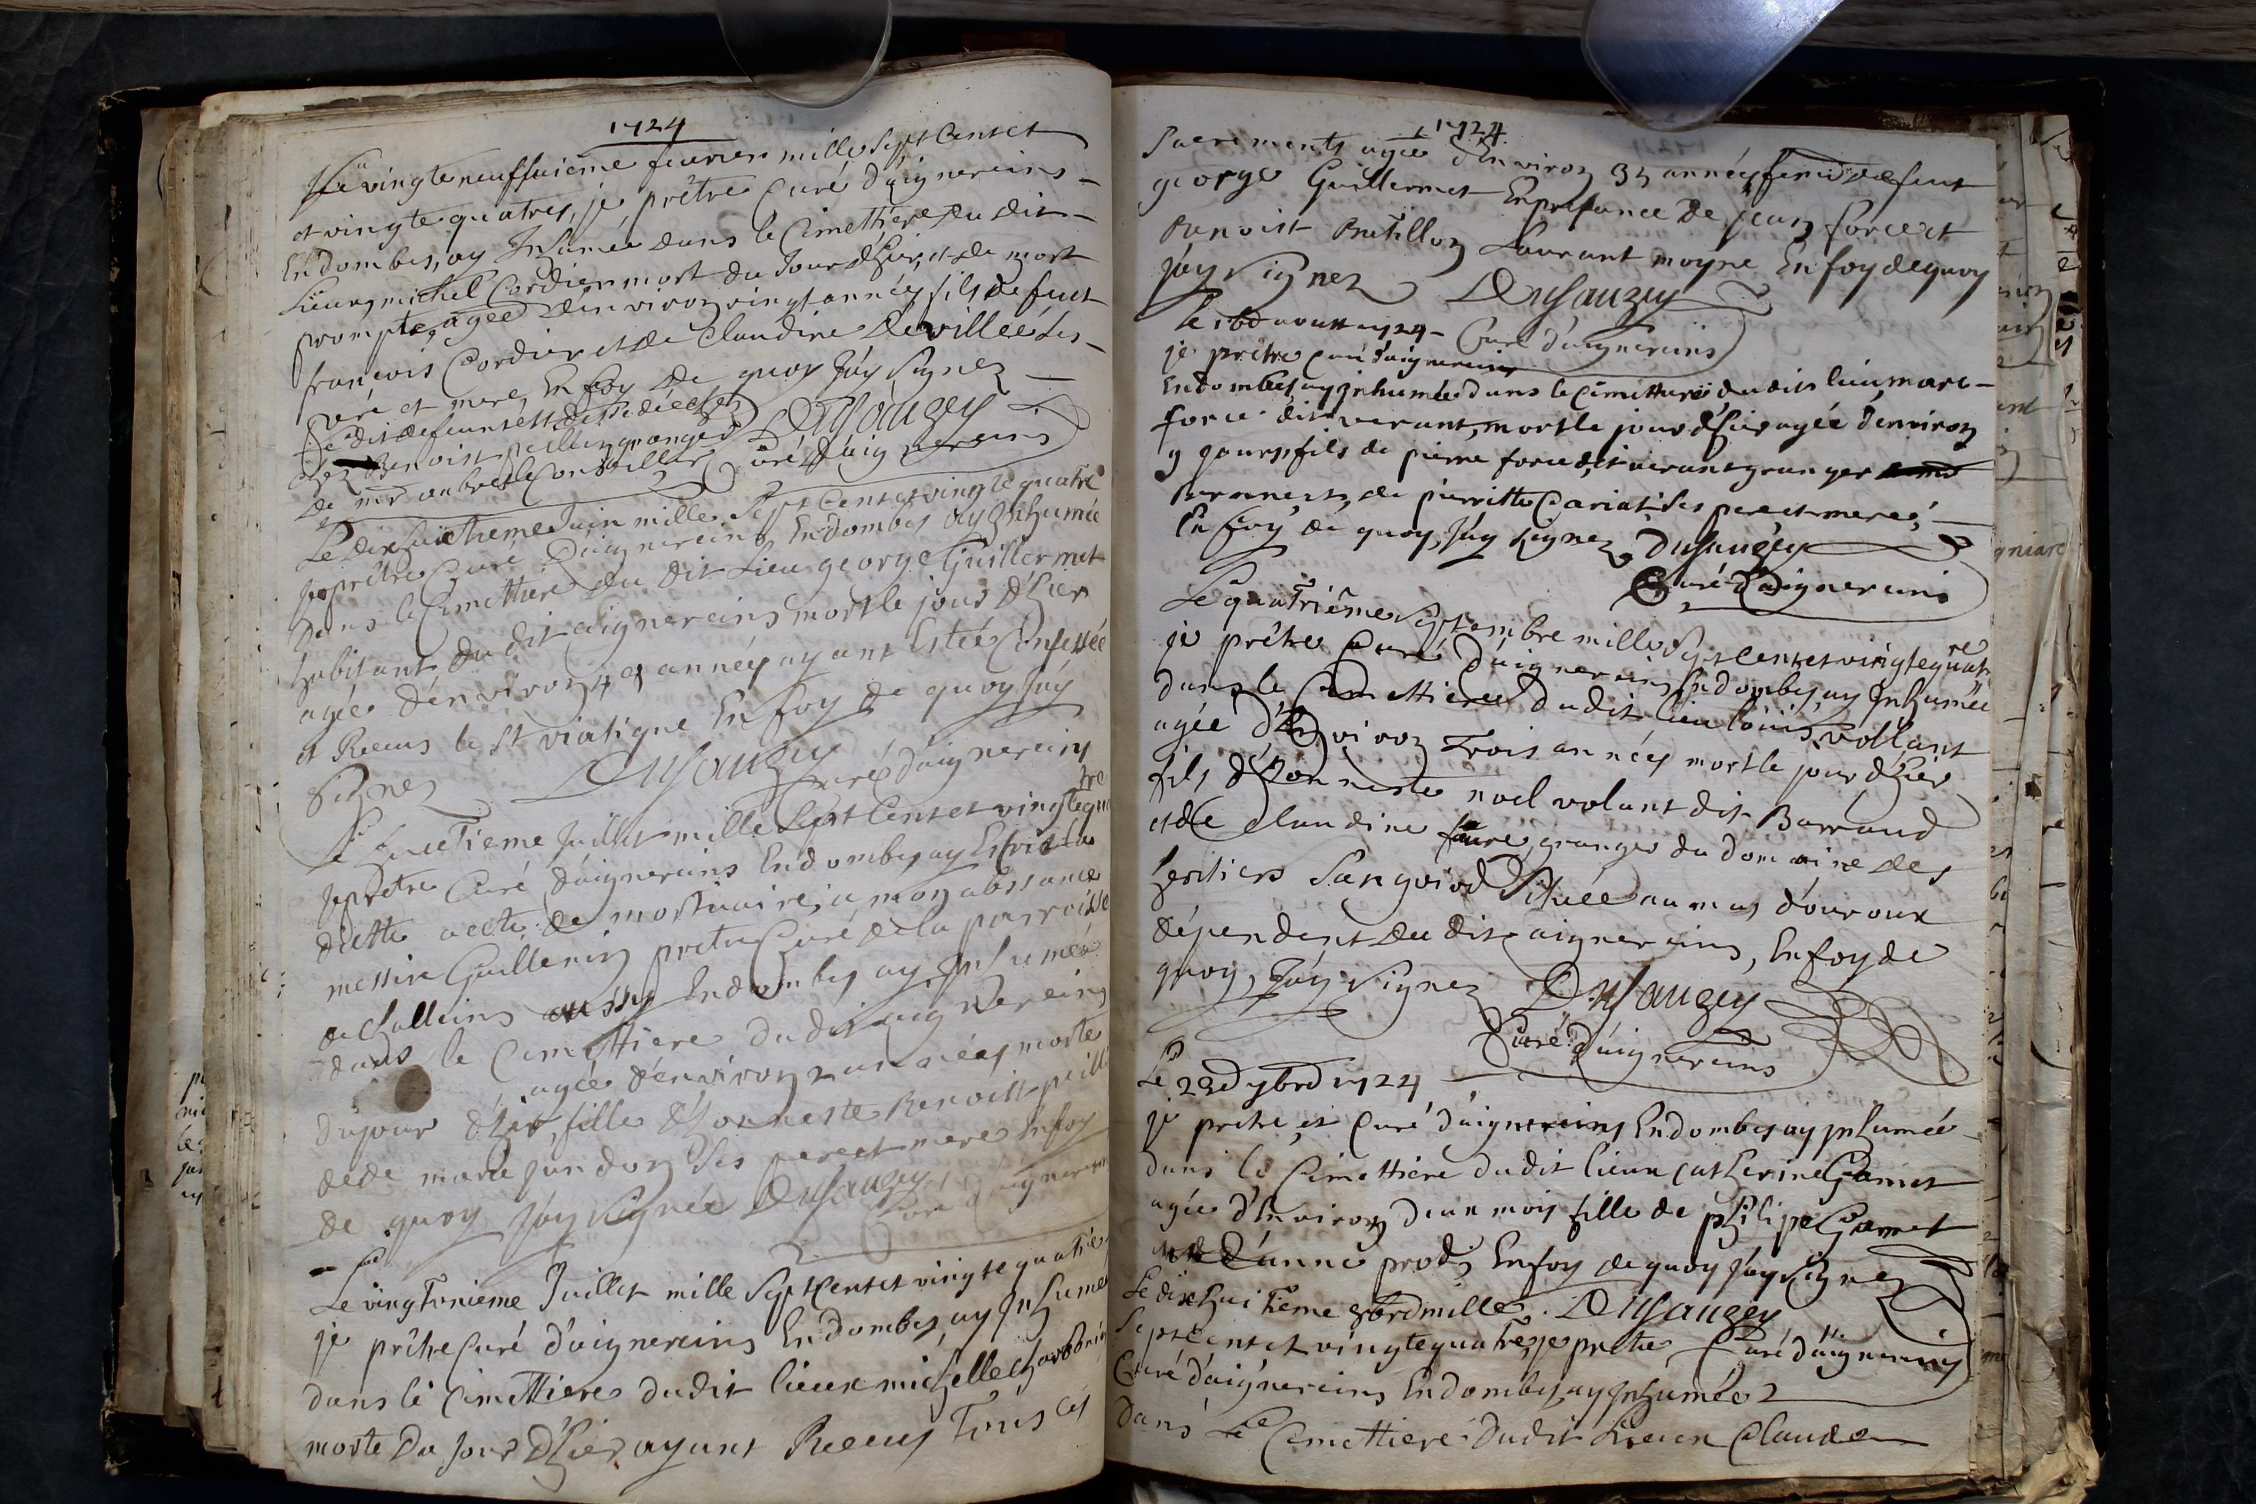 1724
Le vingte neuffuieme feuvrier mille Sept Cents et
et vingte quatres, je prêtre Curé d'aignereins
En dombes, ay Inhumée dans le Cimettiere du dit
Lieux michel Cordier mort du Jour d'hier, et de mort
prompte, agée d'environ vingt années fils de feut
francois Cordier et de Claudine Devillee Ses
peré et mere, En foy de quoy J'áy Signez
Le dit defeunt est decedé
chez Benoist granger
De mr Conseiller
Dusauzey
Curé d'áignereins
Le dix huictieme Juin mille Sept Cents et vingte quatre
Je prêtre Curé D'aignereins En dombes ay Inhumée
Dans le Cimettiere du dit Lieu george Guillermet
habitant du dit aignereins mort le jour d'hier
agée d'environ années ayant Estée Confessée
et Receus le St viatique En foy de quoy J'áy
Signez Dusauzey
Curé d'aignereins
Le huictieme Juillet mille Sept Cents et vingte quatre
Je prêtre Curé d'áignereins En dombes ay Escrit la
ditte acte de mortuaire, a mon abssance
messire Guillemin prêtre Curé de la parroisse
de Challeins aussy En dombes ay Inhumée
dans le Cimettiere du dit aignereins
agée d'environ 2 années morte
Du jour d'hier, fille d'honneste Benoist
de de marie Jandon Ses pere et mere En foy
de quoy J'áy Signée Dusauzey
Curé d'aignereins
Le
Le vingtunieme Juillet mille Sept Cents et vingte quatre
je prêtre Curé d'áignereins En dombes, ay Inhumée
dans le Cimettiere du dit lieux michelle
morte Du Jour d'hier ayant Receus Tous ces
1724
Sacrements agée d'Environ 35 années feme de feut
george Guillermet En présance de Jean force et
Benoist Butillon Laurant moyne En foy de quoy
J'áy Signez Dusauzey
Curé d'áignereins
Le aoust 1724
je prêtre Curé d'aignereins
En dombes ay inhumée dans le Cimettiere du dit lieu marc
force dit verant, mort le jour d'hier agée d'environ
9 jours, fils de pierre force dit verant granger
de pierrette Cariat Ses pere et mere,
En foy de quoy, J'áy Signez Dusauzey
Curé d'aignereins
Le quatriême Septembre mille Sept Cents et vingte quatre
je prêtre Curé D'áignereins En dombes, ay Inhumée
dans le Cimettiere du dit lieu loüis vollant
agée d'Environ Trois années mort le jour d'hier
fils d'honneste noel volant dit Barraud
et de Claudine faure, granger du Domaine des
heritiers Sanguiod Située au mas d'ouroux
dépendant du dit aignereins, En foy de
quoy, J'áy Signez Dusauzey
Curé d'áignereins
Le 23d 7bre 1724
je prêtre et Curé d'áignereins En dombes ay inhumée
dans le Cimettiere du dit lieux Catherine Gamet
agée d'Environ d'un mois fille de philipe Gamet
et d'anne prod, En foy de quoy J'áy Signez
Dusauzey
Curé d'áignereins
Le dix huitieme 8bre mille
Sept Cents et vingte quatre, Je prêtre
Curé d'aignereins En dombes, ay Inhumée
Dans Le Cimettiere du dit Lieux Claude